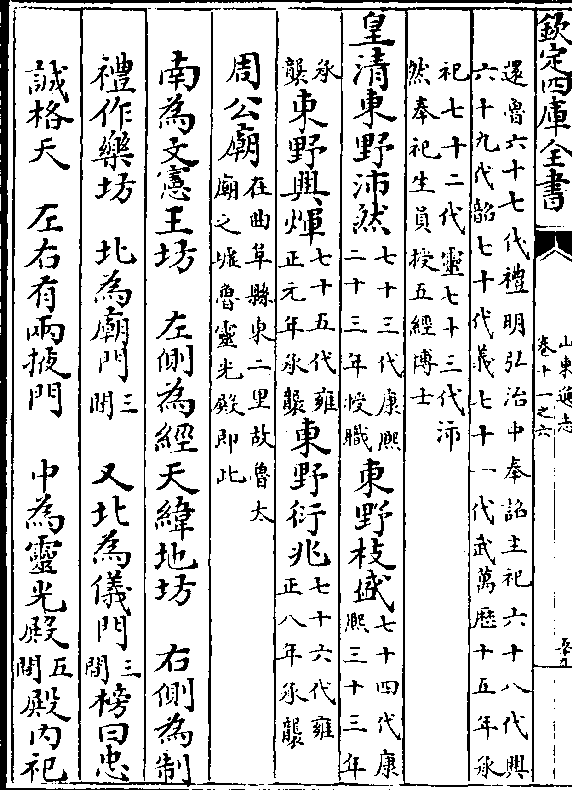 欽定四庫全書
山東通志
卷十一之六
還魯六十七代禮明弘治中奉詔主祀六十八代興
六十九代韶七十代義七十一代武萬歷十五年承
祀七十二代靈七十三代沛
然奉祀生員授五經博士
皇清東野沛然七十三代康熙
二十三年授職東野枝盛七十四代康
熙三十三年
承
襲東野興煇七十五代雍
正元年承襲東野衍兆七十六代雍
正八年承襲
周公廟在曲阜縣東二里故魯太
廟之墟魯靈光殿即此
南為文憲王坊 左側為經天緯地坊 右側為制
禮作樂坊 北為廟門三間 又北為儀門三間榜曰忠
誠格天 左右有兩掖門 中為靈光殿五間殿内祀